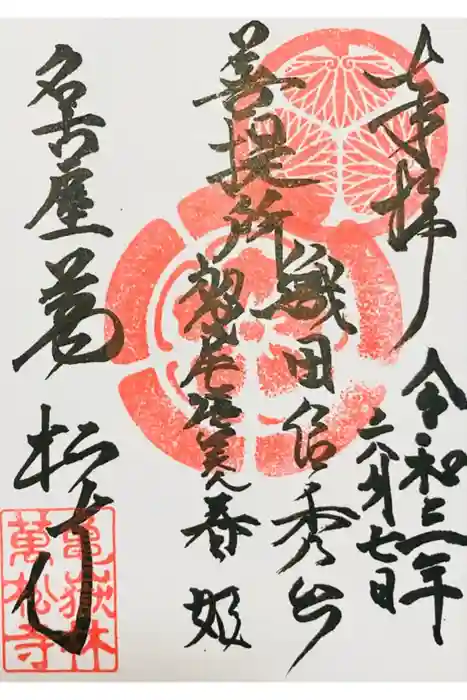 奉拝
令和三年
六月七日
菩提所
織田信秀公
春姫
名古屋 萬松寺
亀嶽林
萬松寺